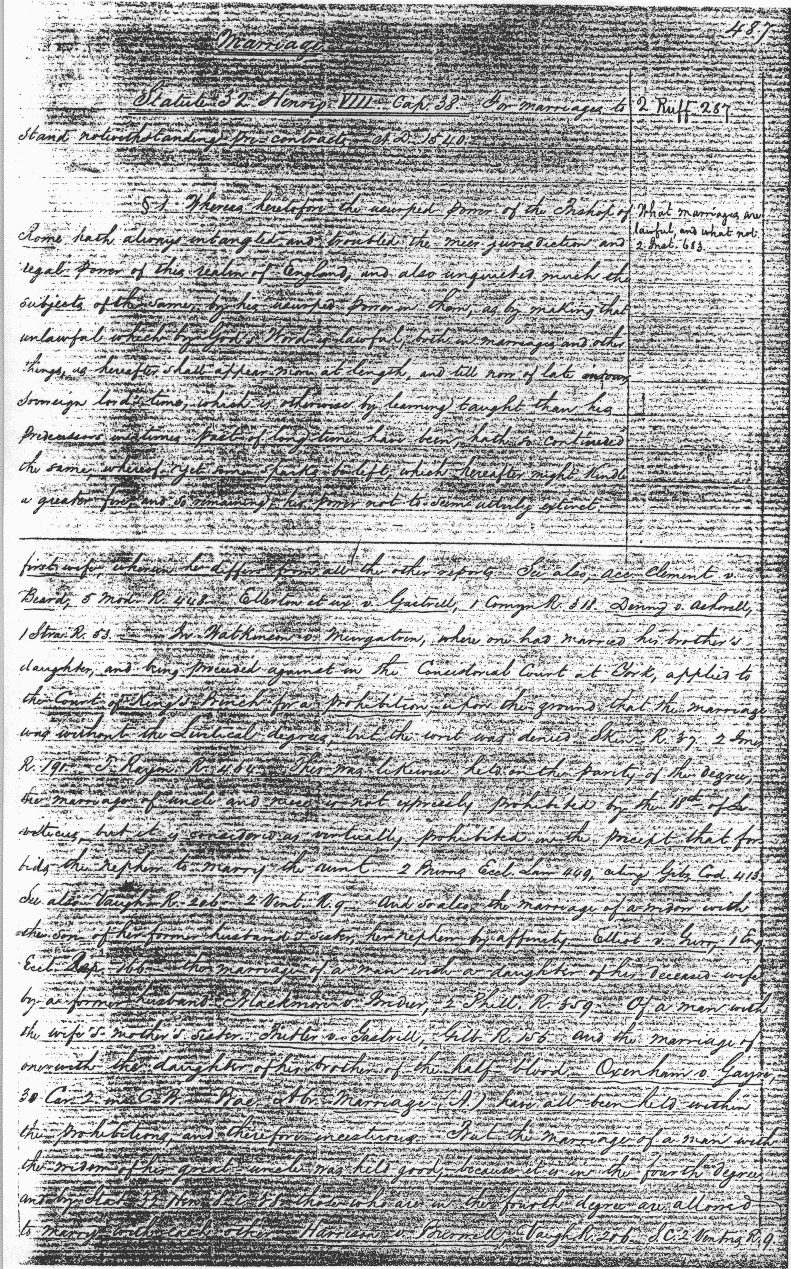 487
Marriage
Statute 32 Henry VIII Cap. 38. For marriages to
2 Ruff. 287.
stand notwithstanding pre-contracts A.D. 1540.
§ 1. Whereas heretofore the usurped power of the Bishop of
What marriages are
lawful, and what not.
2 Inst. 683.
Rome hath always intangled and troubled the meer jurisdiction and
regal power of this realm of England, and also unquieted much the
subjects of the same, by his usurped power in them, as by making that
unlawful which by God's Word is lawful, both in marriages and other
things, as hereafter shall appear more at length, and till now of late in our
sovereign lord's time, which is otherwise by learning taught than his
predecessors in times past of long time have been, hath so continued
the same, whereof yet some sparks be left, which hereafter might kindle
a greater fire, and so remaining his power not to seem utterly extinct.
first wife, wherein he differs from all the other reports. See also, acc. Clement v.
Beard, 5 Mod. R. 448. Ellerton et ux v. Gastrell, 1 Comyn R. 318. Denny v. Ashwell,
1 Stra. R. 53. In Watkinson v. Mergatron, where one had married his brother's
daughter, and being proceeded against in the Consistorial Court at York, applied to
the Court of King's Bench for a prohibition, upon the ground that the marriage
was without the Levitical degrees, but the writ was denied Sk. R. 37. 2
R. 190. T. Raym. R. 464. This was likewise held on the parity of the degree,
the marriage of uncle and niece is not expressly prohibited by the 18th of Le
viticus, but it is considered as virtually prohibited in the precept that for
bids the nephew to marry the aunt. 2 Burns Eccl. Law 449, citing Gibs. Cod. 413.
See also Vaugh. R. 206. 2 Vent. R. 9. And so also, the marriage of a widow with
the son of her former husband's sister, her nephew by affinity. Elliot v. Gurr, 1 Eng.
Eccl. Rep. 166. the marriage of a man with a daughter of his deceased wife
by a former husband. Blackmore v. Brider, 2 Phill. R. 359. Of a man with
the wife's mother's sister. Butler v. Gastrill, Gilb. R. 156. And the marriage of
one with the daughter of his brother of the half blood. Oxenham v. Gayre,
30 Car. 2 in C. B. Bac. Abr. Marriage (A) has all been held within
the prohibitions, and therefore incestuous. But the marriage of a man with
the widow of his great-uncle was held good, because it is in the fourth degree,
and by Stat. 32 Hen. 8. c. 38. those who are in the fourth degree are allowed
to marry with each other. Harrison v. Burwell, Vaugh. R. 206. S.C. 2 Ventris R. 9.